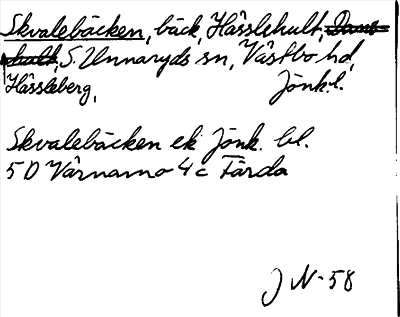 Skvalebäcken, bäck, Hässlehult,
S. Unnaryds sn, Västbo hd,
Hässleberg, Jönk. l.
Skvalebäcken ek Jönk. bl.
5D Värnamo 4c Färda
J N-58